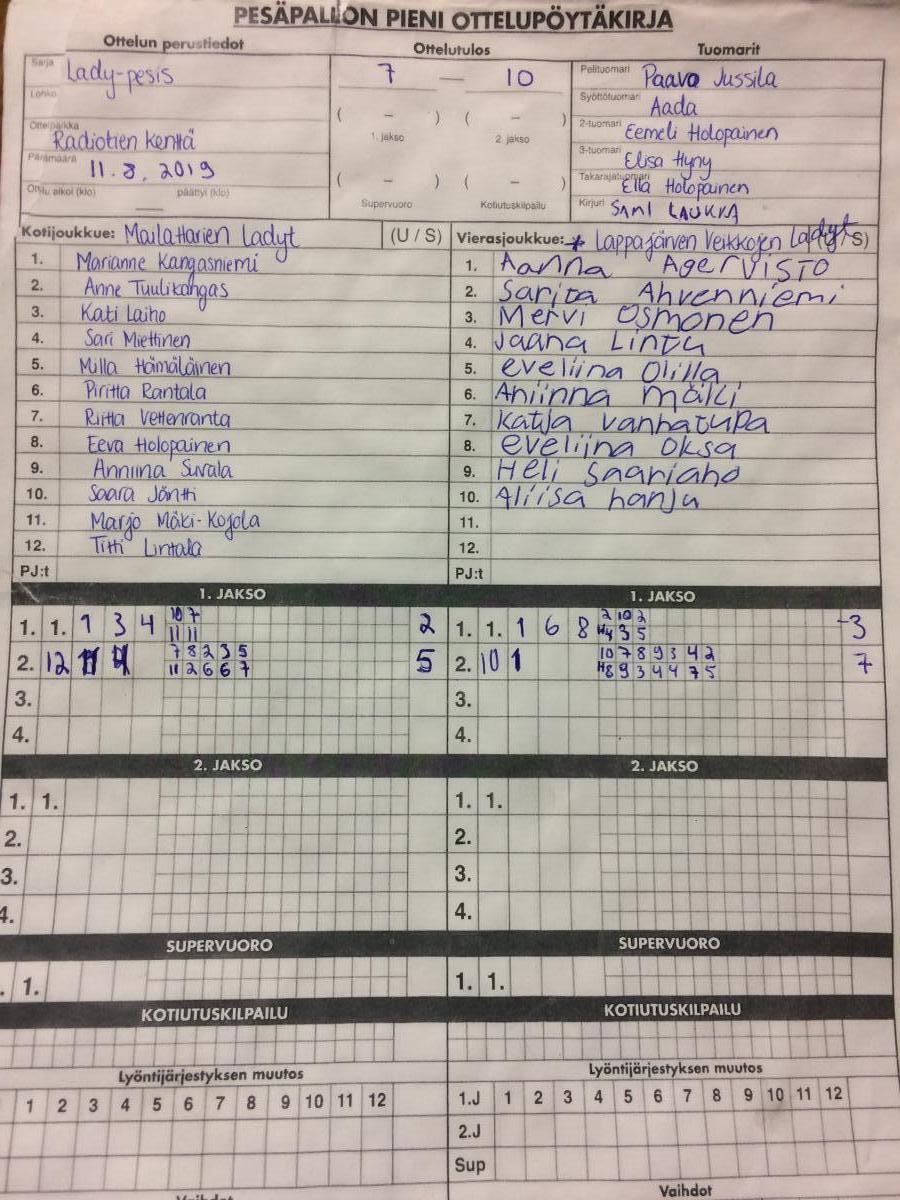 PESÄPALLON PIENI OTTELUPÖYTÄKIRJA
Ottelun perustiedot
Ottelutulos
Tuomarit
Sarja Lady-pesis
Lohko
Ottelupaikka Radiotien kenttä
Päivämäärä 11.8.2019
Ottelu alkoi (klo) päättyi (klo)
7 — 10
( – ) ( – )
1. jakso 2. jakso
( – ) ( – )
Supervuoro Kotiutuskilpailu
Pelituomari Paavo Jussila
Syöttötuomari Aada
2-tuomari Eemeli Holopainen
3-tuomari Elisa Hyny
Takarajatuomari Ella Holopainen
Kirjuri SAMI LAUKIA
Kotijoukkue: MailaHarien Ladyt (U / S)
1. Marianne Kangasniemi
2. Anne Tuulikangas
3. Kati Laiho
4. Sari Miettinen
5. Milla Hämäläinen
6. Piritta Rantala
7. Riitta Vettenranta
8. Eeva Holopainen
9. Anniina Suvala
10. Saara Jäntti
11. Marjo Mäki-Kojola
12. Titti Lintala
PJ:t
Vierasjoukkue: Lappajärven Veikkojen Ladyt S)
1. Aanna AgerVISTO
2. Sarita Ahvenniemi
3. Mervi Osmonen
4. Jaana Lintu
5. eveliina Olilla
6. Aniinna mäki
7. Katja vanhatupa
8. eveliina Oksa
9. Heli Saariaho
10. Aliisa hanju
11.
12.
PJ:t
1. JAKSO
1. 1. 1 3 4 10 7 2
11 11
2. 12 7 8 2 3 5 5
11 2 6 6 7
3.
4.
1. JAKSO
1. 1. 1 6 8 2 10 2 3
4 3 5
2. 10 1 10 7 8 9 3 4 2 7
8 9 3 4 4 7 5
3.
4.
2. JAKSO
1. 1.
2.
3.
4.
2. JAKSO
1. 1.
2.
3.
4.
SUPERVUORO
. 1.
SUPERVUORO
1. 1.
KOTIUTUSKILPAILU
KOTIUTUSKILPAILU
Lyöntijärjestyksen muutos
1 2 3 4 5 6 7 8 9 10 11 12
Lyöntijärjestyksen muutos
1.J 1 2 3 4 5 6 7 8 9 10 11 12
2.J
Sup
Vaihdot
Vaihdot